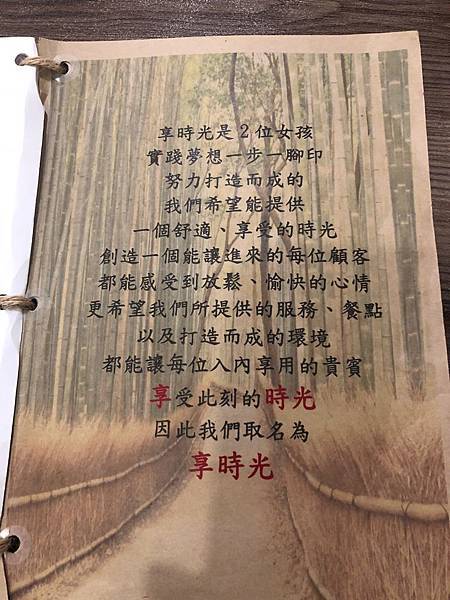 享時光是2位女孩
實踐夢想一步一腳印
努力打造而成的
我們希望能提供
一個舒適、享受的時光
創造一個能讓進來的每位顧客
都能感受到放鬆、愉快的心情
更希望我們所提供的服務、餐點
以及打造而成的環境
都能讓每位入內享用的貴賓
享受此刻的時光
因此我們取名為
享時光